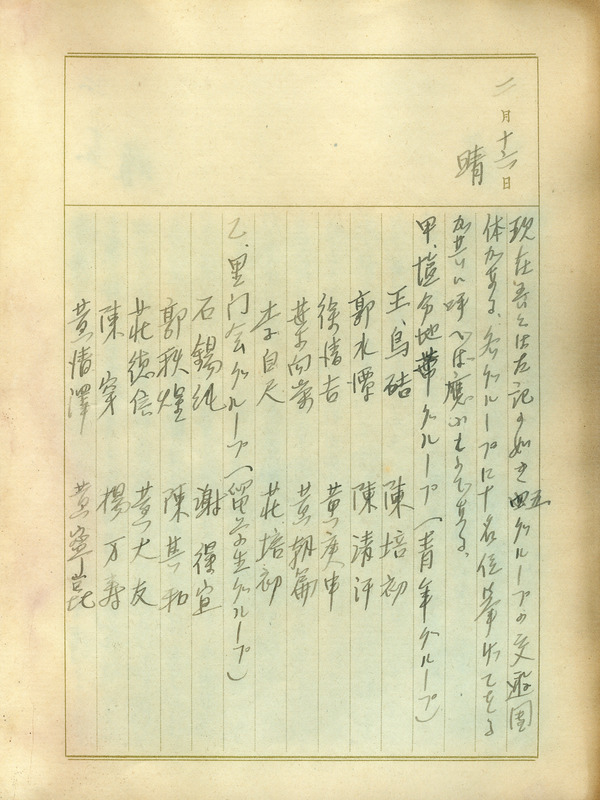 二月十六日
晴
現在吾々は左記の如き五グループの交遊圏
体がある、各グループに十名位挙出てをる
が共に呼べば應ふものである、
甲、塩分地帯グループ（青年グループ）
王烏硈 陳培初
郭水潭 陳清汗
徐清吉 黄庚申
葉向榮 黄朝篇
李自尺 莊培初
乙、里门会グループ（留学生グループ）
石錫純 謝得宜
郭秋煌 陳其和
莊德信 黄大友
陳穿 楊万壽
黄清澤 黄寧崑